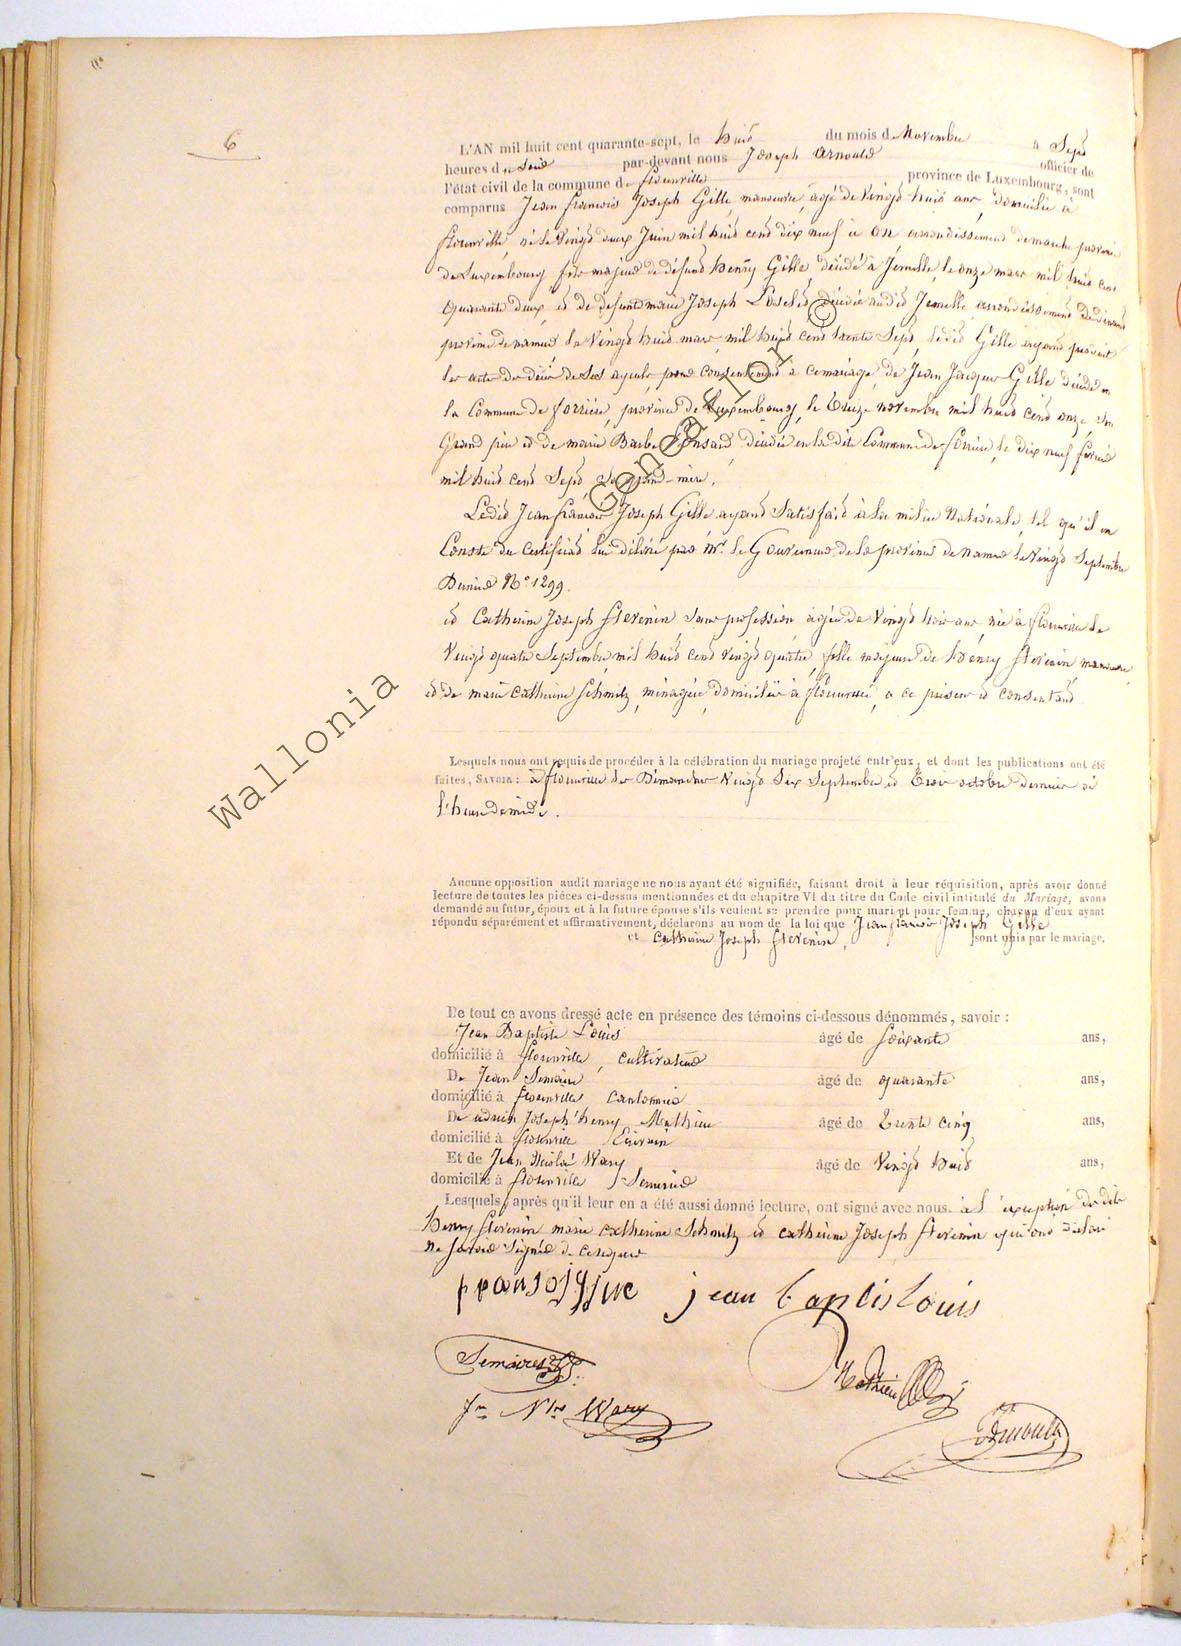 6
L'AN mil huit cent quarante-sept, le huit du mois de Novembre à Sept
heures du Soir par-devant nous Joseph Arnould officier de
l'état civil de la commune de florenville province de Luxembourg, sont
comparus Jean françois Joseph Gille, manoeuvre, agé de Vingt huit ans, domicilié à
florenville, né le Vingt deux Juin mil huit cent dix neuf à On, arrondissement de marche province
de Luxembourg fils majeur de défunt henry Gille décédé à Jemelle, le onze mars mil huit cent
quarante deux et de defunte marie Joseph décédée audit Jemelle, arrondissement de dinant
province de namur le Vingt huit mars mil huit cent trente Sept, ledit Gille ayant produit
les actes de décès de Ses ayeuls pour consentement à ce mariage, de Jean Jacques Gille décédé en
la Commune de forrière, province de Luxembourg, le treize novembre mil huit cent onze, Son
Grand père et de marie Barbe décédée en la dite Commune de forrière, le dix neuf fevrier
mil huit cent Sept Sa grand-mère.
Ledit Jean françois Joseph Gille ayant Satisfait à la milice Nationale, tel qu'il en
Conste du Certificat lui délivré par Mr. le Gouverneur de la province de namur le Vingt Septembre
Dernier No. 1299.
et Catherine Joseph fievenin Sans profession, agée de Vingt trois ans, née à florenville le
Vingt quatre Septembre mil huit cent vingt quatre, fille majeure de henry fievenin, manoeuvre
et de marie catherine Schmitz, ménagère, domiciliés à florenville, à ce présent et consentant
Lesquels nous ont requis de procéder à la célébration du mariage projeté entr'eux, et dont les publications ont été
faites, SAVOIR: à florenville les Dimanches Vingt Six Septembre et trois octobre dernier à
l'heure de midi.
Aucune opposition audit mariage ne nous ayant été signifiée, faisant droit à leur réquisition, après avoir donné
lecture de toutes les pièces ci-dessus mentionnées et du chapitre VI du titre du Code civil intitulé du Mariage, avons
demandé au futur, époux et à la future épouse s'ils veulent se prendre pour mari et pour femme, chacun d'eux ayant
répondu séparément et affirmativement, déclarons au nom de la loi que Jean françois Joseph Gille
et Catherine Joseph fievenin, sont unis par le mariage.
De tout ce avons dressé acte en présence des témoins ci-dessous dénommés, savoir :
Jean Baptiste Louis âgé de Soixante ans,
domicilié à florenville, cultivateur
De Jean Semaire âgé de quarante ans,
domicilié à florenville Cantonnier
De adrien Joseph henry Mathieu âgé de trente cinq ans,
domicilié à florenville Ecrivain
Et de Jean Nicolas Wary âgé de Vingt huit ans,
domicilié à florenville
Lesquels, après qu'il leur en a été aussi donné lecture, ont signé avec nous. à l'exception des dits
henry fievenin marie catherine Schmitz et catherine Joseph fievenin qui ont déclaré
ne Savoir Signer de ce requis
jean baptis Louis
Semaire
Mathieu
Jn Nlas Wary
Arnould
Wallonia
Genealor ©